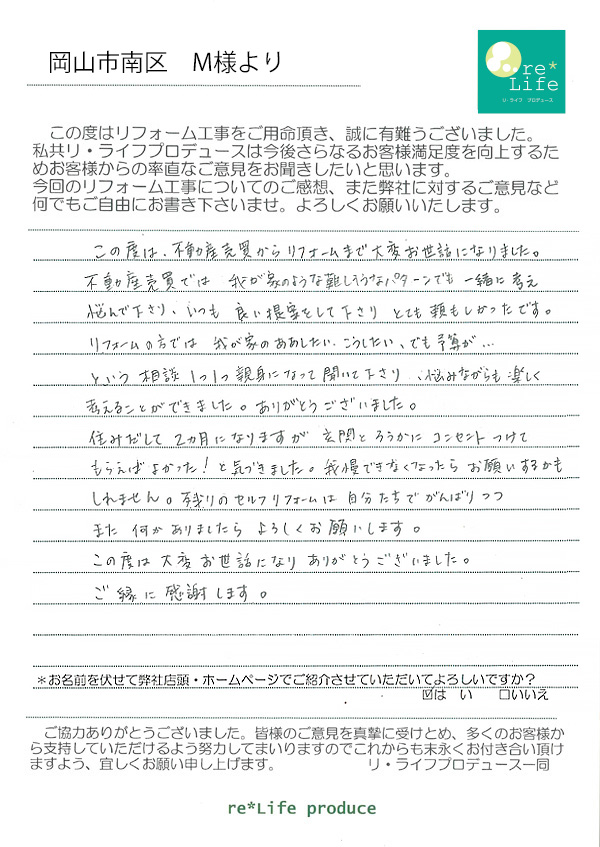 岡山市南区　M様より
re*
Life
リ・ライフ　プロデュース
この度はリフォーム工事をご用命頂き、誠に有難うございました。
私共リ・ライフプロデュースは今後さらなるお客様満足度を向上するた
めお客様からの率直なご意見をお聞きしたいと思います。
今回のリフォーム工事についてのご感想、また弊社に対するご意見など
何でもご自由にお書き下さいませ。よろしくお願いいたします。
この度は、不動産売買からリフォームまで大変お世話になりました。
不動産売買では 我が家のような難しそうなパターンでも 一緒に考え
悩んで下さり、いつも 良い提案をして下さり とても頼もしかったです。
リフォームの方では 我が家のああしたい、こうしたい、でも予算が…
という 相談 1つ1つ親身になって聞いて下さり、悩みながらも楽しく
考えることができました。ありがとうございました。
住みだして 2ヵ月になりますが 玄関とろうかに コンセントつけて
もらえばよかった！と気づきました。我慢できなくなったらお願いするかも
しれません。残りのセルフリフォームは 自分たちで がんばりつつ
また 何かありましたら よろしくお願いします。
この度は 大変お世話になり ありがとうございました。
ご縁に感謝します。
＊お名前を伏せて弊社店頭・ホームページでご紹介させていただいてよろしいですか？
☑は　い　　□いいえ
ご協力ありがとうございました。皆様のご意見を真摯に受けとめ、多くのお客様か
ら支持していただけるよう努力してまいりますのでこれからも末永くお付き合い頂け
ますよう、宜しくお願い申し上げます。　　　リ・ライフプロデュース一同
re*Life produce